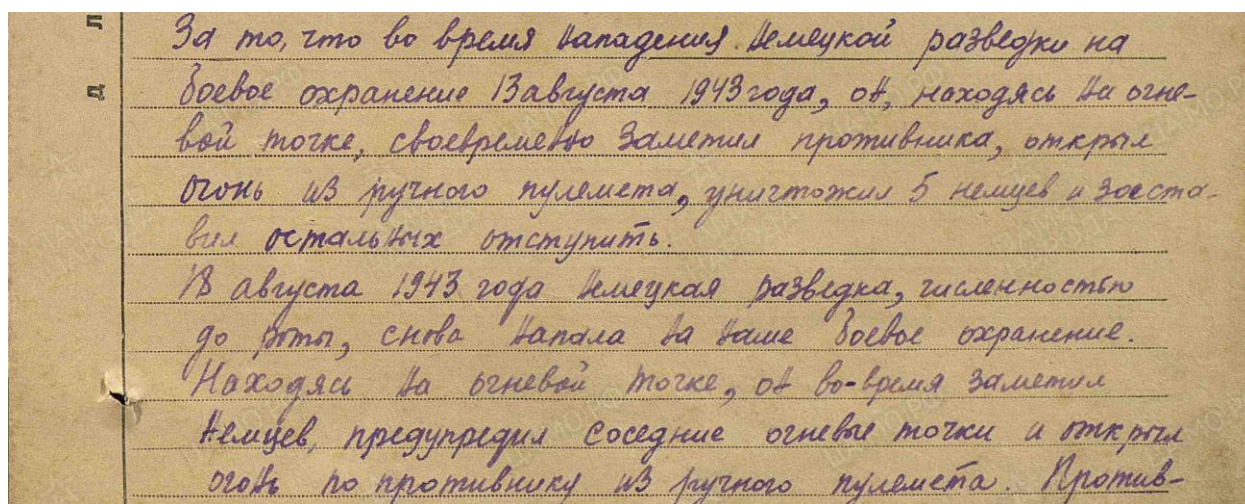 За то, что во время нападения немецкой разведки на
боевое охранение 13 августа 1943 года, он, находясь на огне-
вой точке, своевременно заметил противника, открыл
огонь из ручного пулемета, уничтожил 5 немцев и заста-
вил остальных отступить.
18 августа 1943 года немецкая разведка, численностью
до роты, снова напала на наше боевое охранение.
Находясь на огневой точке, он во-время заметил
немцев, предупредил соседние огневые точки и открыл
огонь по противнику из ручного пулемета. Против-